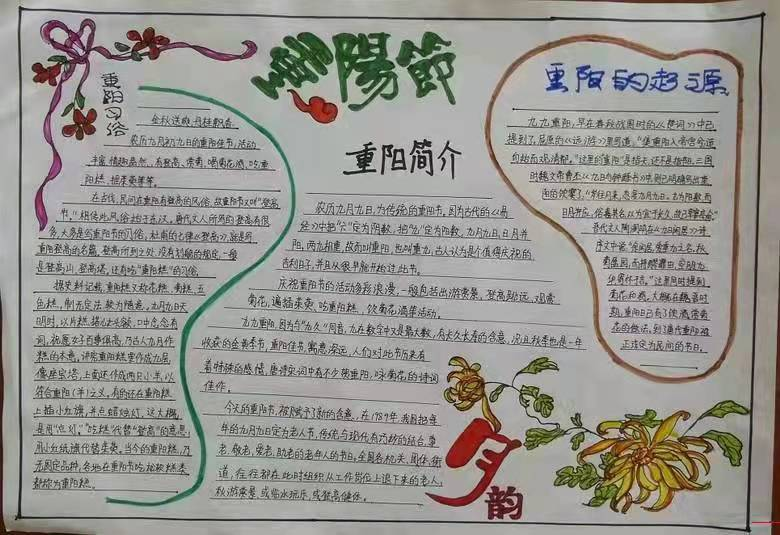 重陽節
重阳习俗
金秋送爽，丹桂飘香。
农历九月初九日的重阳佳节，活动
丰富，情趣盎然，有登高、赏菊、喝菊花酒、吃重
阳糕、插茱萸等等。
在古代，民间在重阳有登高的风俗，故重阳节又叫“登高
节”。相传此风俗始于东汉。唐代文人所写的登高诗很
多，大多是写重阳节的习俗；杜甫的七律《登高》，就是写
重阳登高的名篇。登高所到之处，没有划一的规定，一般
是登高山、登高塔。还有吃“重阳糕”的习俗。
据史料记载，重阳糕又称花糕、菊糕、五
色糕，制无定法，较为随意。九月九日天
明时，以片糕搭儿女头额，口中念念有
词，祝愿子女百事俱高，乃古人九月作
糕的本意。讲究的重阳糕要作成九层，
像座宝塔，上面还作成两只小羊，以
符合重阳（羊）之义。有的还在重阳糕
上插小红旗，并点蜡烛灯。这大概
是用“点灯”、“吃糕”代替“登高”的意思，
用小红纸旗代替茱萸。当今的重阳糕，仍
无固定品种，各地在重阳节吃的松软糕类
都称为重阳糕。
重阳简介
农历九月九日，为传统的重阳节。因为古代的《易
经》中把“六”定为阴数，把“九”定为阳数，九月九日，日月并
阳，两九相重，故而叫重阳，也叫重九，古人认为是个值得庆贺的
吉利日子，并且从很早就开始过此节。
庆祝重阳节的活动多彩浪漫，一般包括出游赏景、登高远眺、观赏
菊花、遍插茱萸、吃重阳糕、饮菊花酒等活动。
九九重阳，因为与“久久”同音，九在数字中又是最大数，有长久长寿的含意，况且秋季也是一年
收获的金黄季节，重阳佳节，寓意深远，人们对此节历来有
着特殊的感情，唐诗宋词中有不少贺重阳，咏菊花的诗词
佳作。
今天的重阳节，被赋予了新的含意，在1989年，我国把每
年的九月九日定为老人节，传统与现代巧妙的结合，成为尊
老、敬老、爱老、助老的老年人的节日。全国各机关、团体、街
道，往往都在此时组织从工作岗位上退下来的老人们
秋游赏景，或临水玩乐，或登高健体。
重阳的起源
九九重阳，早在春秋战国时的《楚词》中已
提到了。屈原的《远游》里写道：“集重阳入帝宫兮，造
旬始而观清都”。这里的“重阳”是指天，还不是指节日。三国
时魏文帝曹丕《九日与钟繇书》中，则已明确写出重
阳的饮宴了：“岁往月来，忽复九月九日。九为阳数，而
日月并应，俗嘉其名，以为宜于长久，故以享宴高会。”
晋代文人陶渊明在《九日闲居》诗
序文中说：“余闲居，爱重九之名。秋
菊盈园，而持醪靡由，空服九
华，寄怀于言”。这里同时提到
菊花和酒。大概在魏晋时
期，重阳日已有了饮酒、赏菊
花的做法。到了唐代重阳被
正式定为民间的节日。
月
韵